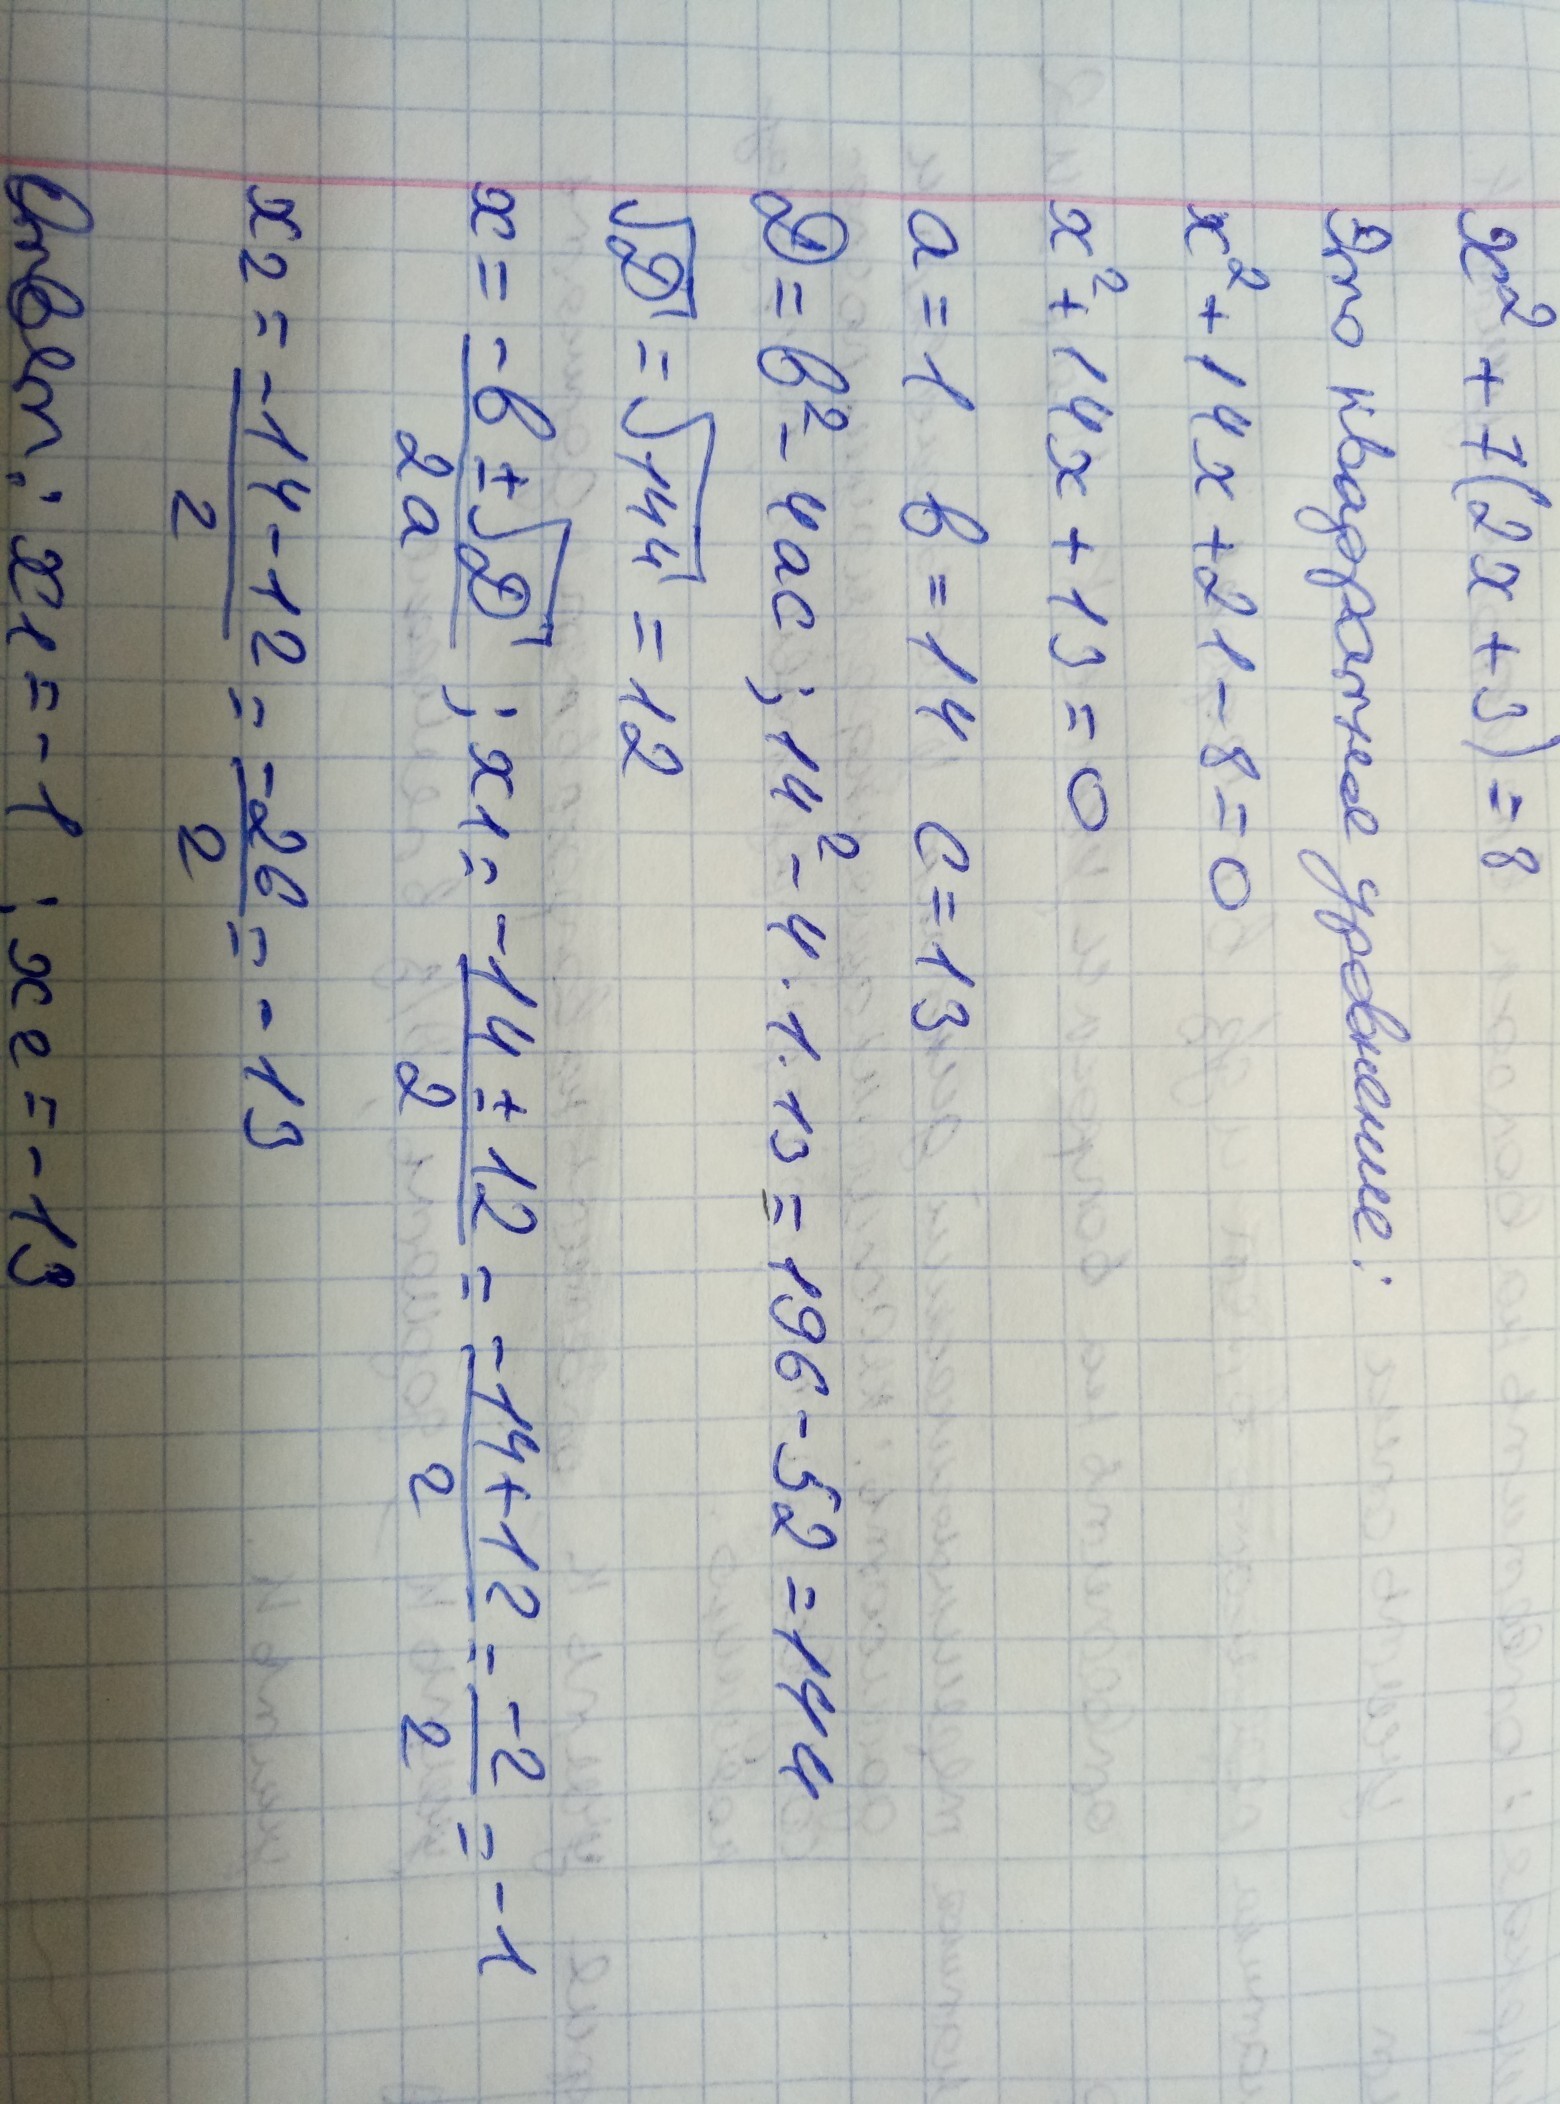 x² + 7(2x + 3) = 8
Это квадратное уровнение:
x² + 14x + 21 - 8 = 0
x² + 14x + 13 = 0
a = 1 в = 14 c = 13
D = в² - 4ac ; 14² - 4 · 1 · 13 = 196 - 52 = 144
√D = √144 = 12
x = (-в ± √D)/2a ; x1 = (-14 ± 12)/2 = (-14 + 12)/2 = -2/2 = -1
x2 = (-14 - 12)/2 = -26/2 = -13
Ответ: x1 = -1 ; x2 = -13